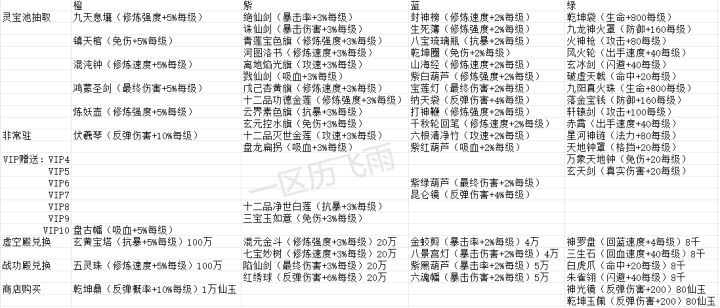 橙 紫 蓝 绿
灵宝池抽取 九天息壤（修炼强度+5%每级） 绝仙剑（暴击率+3%每级） 封神榜（修炼速度+2%每级） 乾坤袋（生命+800每级）
诛仙剑（暴击伤害+3%每级） 生死簿（修炼强度+2%每级） 九龙神火罩（防御+160每级）
镇天棺（免伤+5%每级） 青莲宝色旗（修炼强度+3%每级） 八宝琉璃瓶（抗暴+2%每级） 火神枪（攻击+80每级）
河图洛书（修炼速度+3%每级） 乾坤圈（免伤+2%每级） 风火轮（出手速度+40每级）
混沌钟（修炼速度+5%每级） 离地焰光旗（攻速+3%每级） 山海经（修炼速度+2%每级） 玄冰剑（闪避+40每级）
戮仙剑（吸血+3%每级） 紫白葫芦（修炼强度+2%每级） 破虚天戟（命中+20每级）
鸿蒙圣剑（最终伤害+5%每级） 戊己杏黄旗（修炼速度+3%每级） 宝莲灯（最终伤害+2%每级） 九阴真火珠（生命+800每级）
十二品功德金莲（修炼强度+3%每级） 纳天袋（反弹伤害+4%每级） 落金宝钱（防御+160每级）
炼妖壶（修炼强度+5%每级） 云界素色旗（抗暴+3%每级） 打神鞭（修炼速度+2%每级） 轩辕剑（攻击+100每级）
玄元控水旗（免伤+3%每级） 千秋轮回笔（修炼速度+2%每级） 赤霄（出手速度+40每级）
非常驻 伏羲琴（反弹伤害+10%每级） 十二品灭世金莲（攻速+3%每级） 六根清净竹（攻速+2%每级） 星河神链（法力+80每级）
盘龙扁拐（吸血+3%每级） 紫红葫芦（吸血+2%每级） 天地钟罩（格挡+20每级）
VIP赠送：VIP4 万象天地钟（免伤+20每级）
VIP5 玄天剑（真实伤害+20每级）
VIP6 紫绿葫芦（最终伤害+2%每级）
VIP7 昆仑镜（反弹伤害+4%每级）
VIP8 十二品净世白莲（抗暴+3%每级）
VIP9 三宝玉如意（免伤+3%每级）
VIP10 盘古幡（吸血+5%每级）
虚空殿兑换 玄黄宝塔（抗暴+5%每级）100万 混元金斗（修炼强度+3%每级）20万 金蛟剪（暴击率+2%每级）4万 神罗盘（回蓝速度+4每级）8千
七宝妙树（修炼强度+3%每级）20万 八景宫灯（暴击伤害+2%每级）4万 三生石（回血速度+40每级）8千
战功殿兑换 五灵珠（修炼速度+5%每级）100万 陷仙剑（最终伤害+3%每级）20万 紫黑葫芦（暴击伤害+2%每级）5万 白虎爪（命中+20每级）8千
红绣球（反弹伤害+6%每级）20万 六魂幡（暴击伤害+2%每级）5万 朱雀翎（闪避+40每级）8千
商店购买 乾坤鼎（反弹概率+10%每级）1万仙玉 神光镜（反弹伤害+200）80仙玉
乾坤玉佩（反弹伤害+200）80仙玉
一区历飞雨